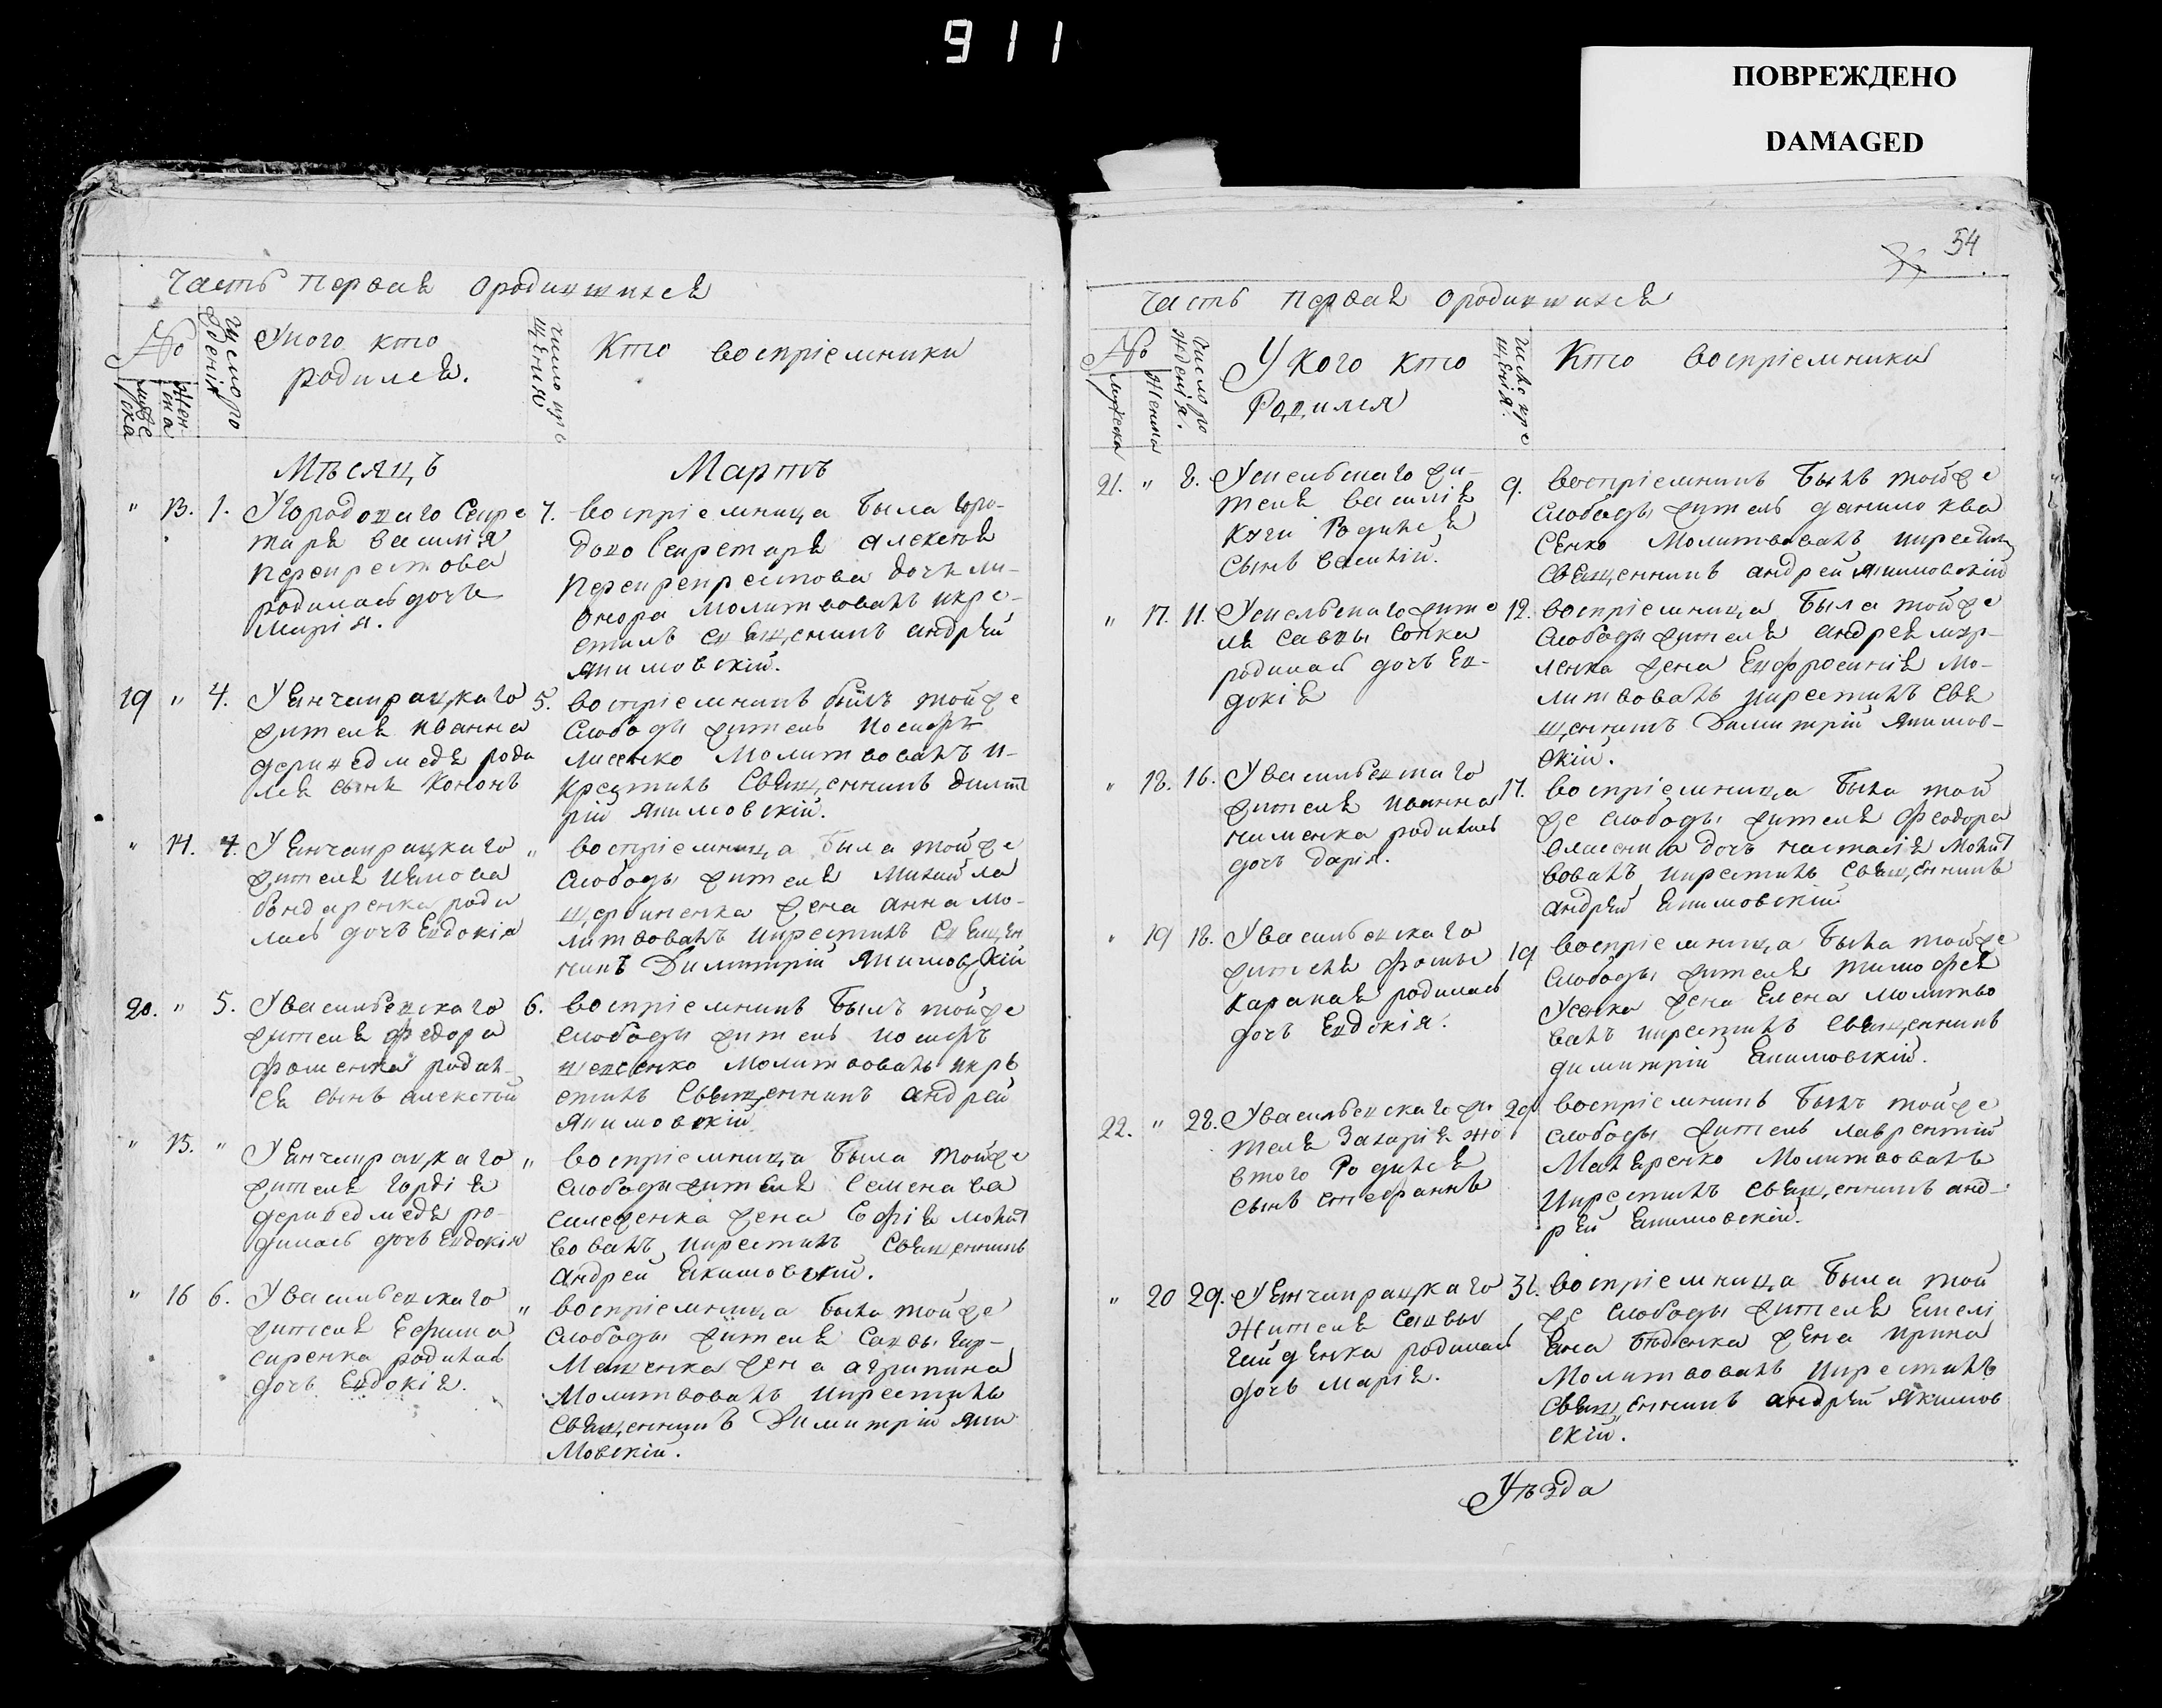 911
ПОВРЕЖДЕНО
DAMAGED
54
Часть первая ородившихся
№
мужеска
женска
Число рождения
Укого кто
родился.
Число крещения
Кто воспріемники
Мѣсяцъ Мартъ
" 13. 1. Угородоваго Секре 7.
таря василія
перекрестова
родилась дочь
Марія.
воспріемница была горо-
доваго Секретаря алексѣя
дочь
Молитвовалъ икре-
стилъ священникъ андрей
якимовскій.
19 " 4. У 5.
жителя иванна
роди
лся сынъ Кононъ
воспріемникъ былъ тойже
слободы житель иосифъ
лисенко Молитвовалъ и-
крестилъ священникъ димит
рій якимовскій.
" 14. 4. У "
жителя
бондаренка роди
лась дочь Евдокія
воспріемница была тойже
слободы жителя михайла
щербиненка жена анна мо-
литвовалъ икрестилъ священ
никъ Димитрій якимовскій
20. " 5. Увасильевскаго 6.
жителя федора
фоменка родил-
ся сынъ алексѣй
воспріемникъ былъ тойже
слободы житель иосифъ
Молитвовалъ икре
стилъ священникъ андрей
якимовскій
" 15. " У "
жителя гордія
ро-
дилась дочь Евдокія
воспріемница была тойже
слободы жителя семена ва
силеженка жена Софія молит
вовалъ икрестилъ священникъ
андрей якимовскій.
" 16 6. Увасильевскаго "
жителя Ефима
сиренка родилась
дочь Евдокія.
воспріемница была тойже
слободы жителя Саввы
жена агрипина
Молитвовалъ икрестилъ
священникъ Димитрій яки
мовскій.
Часть первая ородившихся
№
мужеска
Женска
Число рожденія.
Укого кто
Родился
Число крещенія.
Кто воспріемники
21. " 8. жи- 9.
теля василія
Родился
сынъ василій.
воспріемникъ былъ тойже
слободы житель данило ква
сенко Молитвовалъ икрестилъ
священникъ андрей якимовскій
" 17. 11. жите 12.
ля саввы сопка
родилась дочь Ев-
докія
воспріемница была тойже
слободы жителя андрея мир-
ленка жена Евфросинія Мо-
литвовалъ икрестилъ свя
щенникъ Димитрій якимов-
скій.
" 18. 16. Увасильевскаго 17.
жителя иванна
родилась
дочь Дарія.
воспріемница была той
же слободы жителя Феодора
дочь настасія Молит
вовалъ икрестилъ священникъ
андрей якимовскій
" 19 18. Увасильевскаго 19
жителя фомы
родилась
дочь Евдокія.
воспріемница была тойже
слободы жителя тимофея
Усенка жена Елена молитво
валъ икрестилъ священникъ
димитрій якимовскій.
22. " 28. Увасильевскаго жи 29
теля Захарія жо
втого Родился
сынъ стефаннъ
воспріемникъ былъ тойже
слободы житель лаврентій
Маляренко Молитвовалъ
икрестилъ священникъ анд-
рей якимовскій.
" 20 29. У 31.
Жителя саввы
родилась
дочь марія.
воспріемница была той
же слободы жителя Емелі
яна жена ирина
Молитвовалъ икрестилъ
священникъ андрей якимов
скій.
Уѣзда